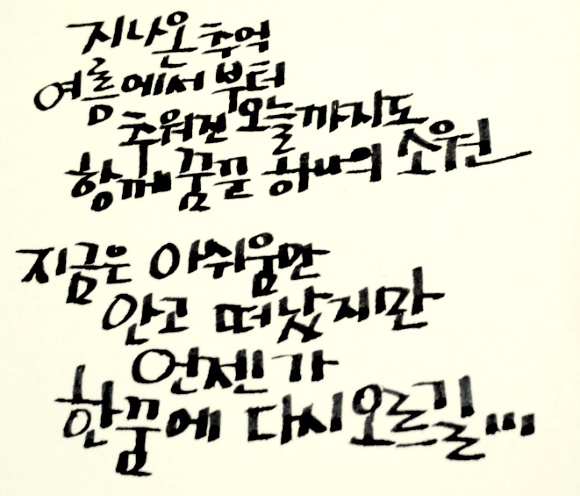 지나온 추억
여름에서 부터
추워진 오늘까지도
함께 꿈꾼 하나의 소원
지금은 아쉬움만
안고 떠났지만
언젠가
한꿈에 다시오르길...